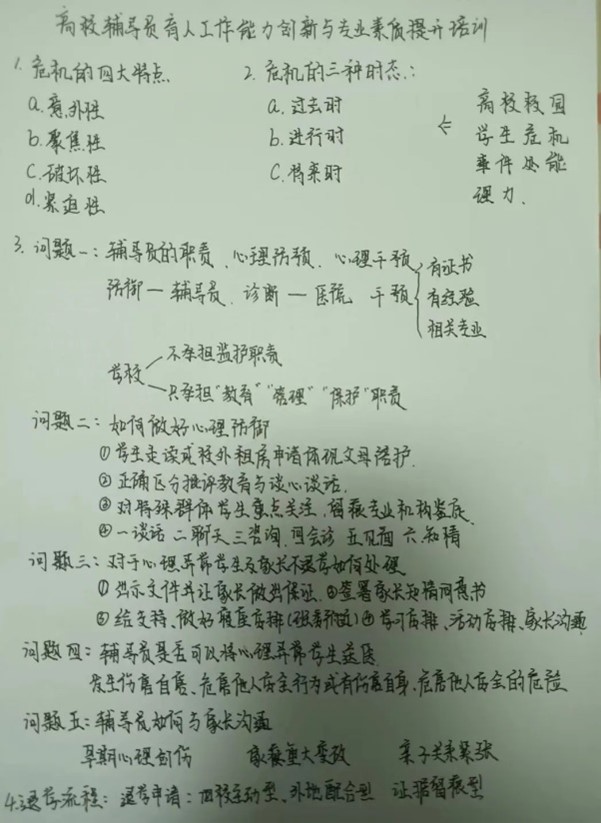 高校辅导员育人工作能力创新与专业素质提升培训
1. 危机的四大特点
a. 意外性
b. 聚焦性
c. 破坏性
d. 紧迫性
2. 危机的三种时态:
a. 过去时
b. 进行时
c. 将来时
← 高校校园
学生危机
事件处能
理力.
3. 问题一: 辅导员的职责、心理防预、心理干预
防御一辅导员、诊断一医院 干预
有证书
有经验
相关专业
学校
不承担监护职责
只承担"教育""管理""保护"职责
问题二: 如何做好心理防御
① 学生走读或校外租房申请体现父母陪护.
② 正确区分批评教育与谈心谈话.
③ 对特殊群体学生重点关注, 留痕专业机构鉴底.
④ 一谈话 二聊天 三咨询 四会诊 五见面 六知情
问题三: 对于心理异常学生及家长不退学如何处理
① 出示文件并让家长做出保证. ②签署家长知情同意书
③ 给支持、做好寝室安排 ④学习安排、活动安排、家长沟通
问题四: 辅导员是否可以将心理异常学生送医
发生伤害自身、危害他人安全行为或有伤害自身、危害他人安全的危险
问题五: 辅导员如何与家长沟通
早期心理创伤 家庭重大变故 亲子关系紧张
4. 退学流程: 退学申请: 回校主动型、外地配合型 证据留痕型